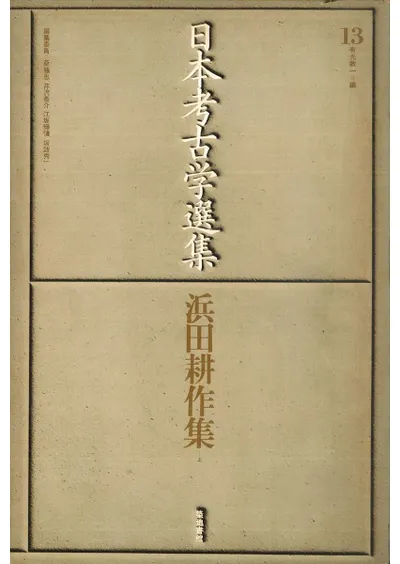 13
有光教一=編
日本考古学選集
編集委員 斎藤忠 芹沢長介 江坂輝彌 坂詰秀一
浜田耕作集
上
築地書館